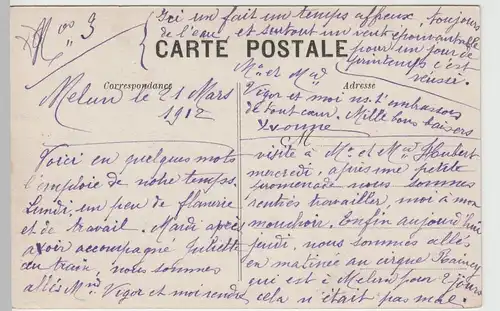 Nos 3
Ici un fait un temps affreux, toujours
de l'eau et surtout un vent épouvantable
pour un jour de
printemps c'est
réussi.
CARTE POSTALE
Correspondance
Adresse
Melun le 21 Mars
1912
Mr et Md
Vigor et moi ns. t'embrassons
de tout cœur. Mille bons baisers
Yvonne
Voici en quelques mots
l'emploie de notre temps.
Lundi, un peu de flânerie
et de travail. Mardi après
avoir accompagné Juliette
au train, nous sommes
allés Md Vigor et moi rendre
visite à Mr et Md Hubert
mercredi, après une petite
promenade nous sommes
rentrés travailler, moi à mon
mouchoir. Enfin aujourd'hui
jeudi, nous sommes allés
en matinée au cirque
qui est à Melun pour 2 jours
cela n'était pas mal.